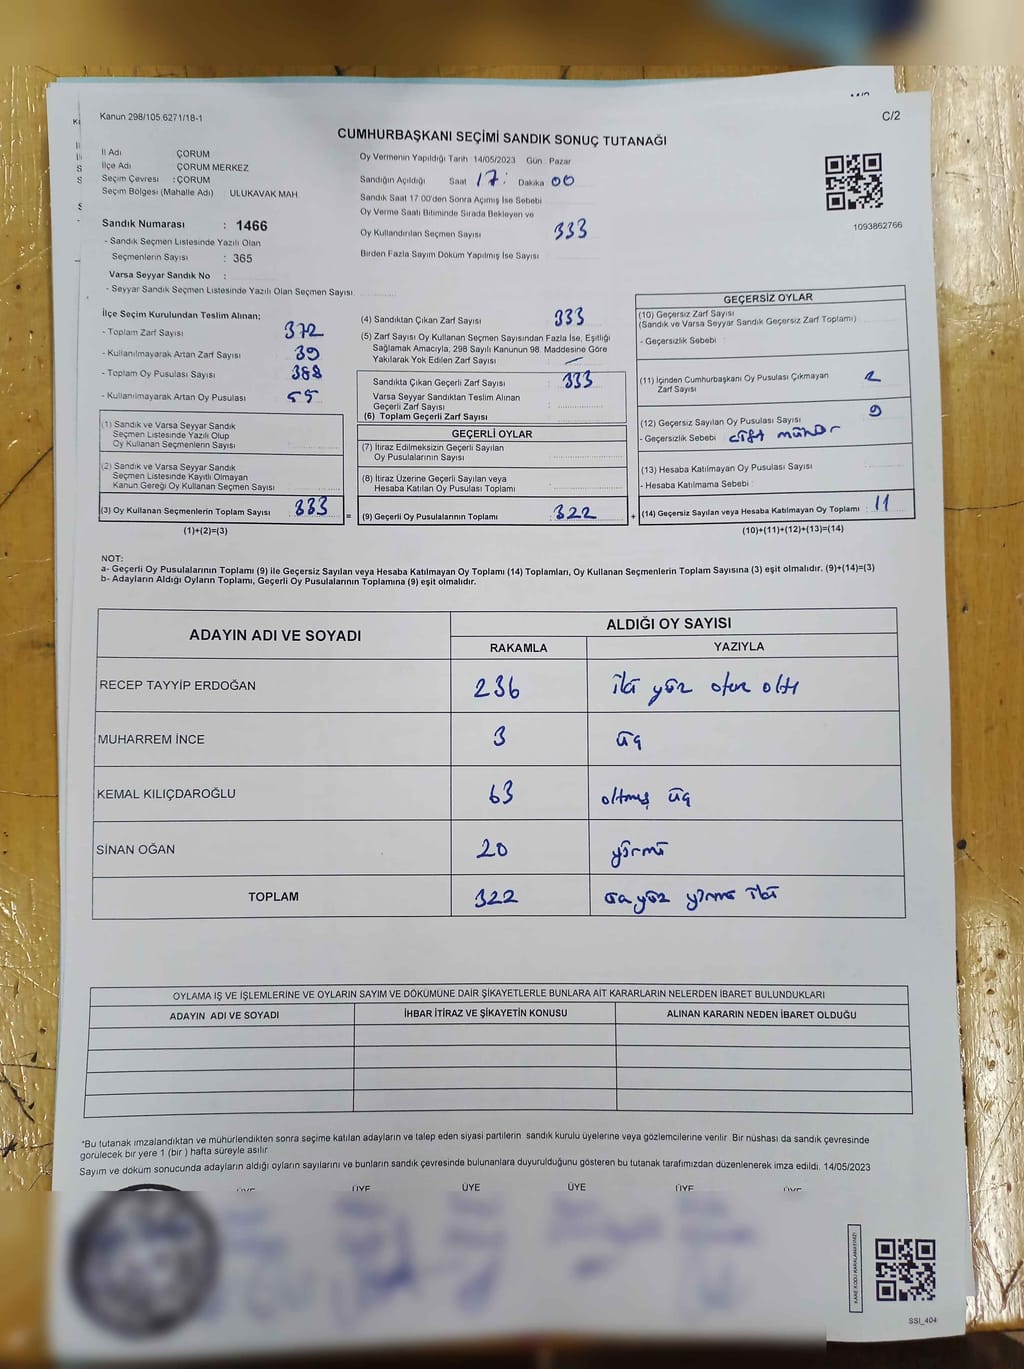 Kanun 298/105,6271/18-1
C/2
CUMHURBAŞKANI SEÇİMİ SANDIK SONUÇ TUTANAĞI
İl Adı ÇORUM
İlçe Adı ÇORUM MERKEZ
Seçim Çevresi : ÇORUM
Seçim Bölgesi (Mahalle Adı) : ULUKAVAK MAH.
Sandık Numarası : 1466
- Sandık Seçmen Listesinde Yazılı Olan
Seçmenlerin Sayısı : 365
Varsa Seyyar Sandık No :
- Seyyar Sandık Seçmen Listesinde Yazılı Olan Seçmen Sayısı
Oy Vermenin Yapıldığı Tarih 14/05/2023 Gün Pazar
Sandığın Açıldığı Saat 17: Dakika 00
Sandık Saat 17 00'den Sonra Açımış İse Sebebi
Oy Verme Saati Bitiminde Sırada Bekleyen ve
Oy Kullandırılan Seçmen Sayısı 333
Birden Fazla Sayım Döküm Yapılmış İse Sayısı
1093862766
İlçe Seçim Kurulundan Teslim Alınan:
- Toplam Zarf Sayısı 372
- Kullanılmayarak Artan Zarf Sayısı 39
- Toplam Oy Pusulası Sayısı 388
- Kullanılmayarak Artan Oy Pusulası 55
(1) Sandık ve Varsa Seyyar Sandık
Seçmen Listesinde Yazılı Olup
Oy Kullanan Seçmenlerin Sayısı
(2) Sandık ve Varsa Seyyar Sandık
Seçmen Listesinde Kayıtlı Olmayan
Kanun Gereği Oy Kullanan Seçmen Sayısı
(3) Oy Kullanan Seçmenlerin Toplam Sayısı : 333
(1)+(2)=(3)
=
(4) Sandıktan Çıkan Zarf Sayısı 333
(5) Zarf Sayısı Oy Kullanan Seçmen Sayısından Fazla İse, Eşitliği
Sağlamak Amacıyla, 298 Sayılı Kanunun 98. Maddesine Göre
Yakılarak Yok Edilen Zarf Sayısı —
Sandıkta Çıkan Geçerli Zarf Sayısı : 333
Varsa Seyyar Sandıktan Teslim Alınan
Geçerli Zarf Sayısı
(6) Toplam Geçerli Zarf Sayısı
GEÇERLİ OYLAR
(7) İtiraz Edilmeksizin Geçerli Sayılan
Oy Pusulalarının Sayısı
(8) İtiraz Üzerine Geçerli Sayılan veya
Hesaba Katılan Oy Pusulası Toplamı
(9) Geçerli Oy Pusulalarının Toplamı : 322
+
GEÇERSİZ OYLAR
(10) Geçersiz Zarf Sayısı
(Sandık ve Varsa Seyyar Sandık Geçersiz Zarf Toplamı)
- Geçersizlik Sebebi
(11) İçinden Cumhurbaşkanı Oy Pusulası Çıkmayan 2
Zarf Sayısı
(12) Geçersiz Sayılan Oy Pusulası Sayısı 9
- Geçersizlik Sebebi çift mühür
(13) Hesaba Katılmayan Oy Pusulası Sayısı
- Hesaba Katılmama Sebebi
(14) Geçersiz Sayılan veya Hesaba Katılmayan Oy Toplamı : 11
(10)+(11)+(12)+(13)=(14)
NOT:
a- Geçerli Oy Pusulalarının Toplamı (9) ile Geçersiz Sayılan veya Hesaba Katılmayan Oy Toplamı (14) Toplamları, Oy Kullanan Seçmenlerin Toplam Sayısına (3) eşit olmalıdır. (9)+(14)=(3)
b- Adayların Aldığı Oyların Toplamı, Geçerli Oy Pusulalarının Toplamına (9) eşit olmalıdır.
ADAYIN ADI VE SOYADI ALDIĞI OY SAYISI
RAKAMLA YAZIYLA
RECEP TAYYİP ERDOĞAN 236 iki yüz otuz altı
MUHARREM İNCE 3 üç
KEMAL KILIÇDAROĞLU 63 altmış üç
SİNAN OĞAN 20 yirmi
TOPLAM 322 üçyüz yirmi iki
OYLAMA İŞ VE İŞLEMLERİNE VE OYLARIN SAYIM VE DÖKÜMÜNE DAİR ŞİKAYETLERLE BUNLARA AİT KARARLARIN NELERDEN İBARET BULUNDUKLARI
ADAYIN ADI VE SOYADI İHBAR İTİRAZ VE ŞİKAYETİN KONUSU ALINAN KARARIN NEDEN İBARET OLDUĞU
*Bu tutanak imzalandıktan ve mühürlendikten sonra seçime katılan adayların ve talep eden siyasi partilerin sandık kurulu üyelerine veya gözlemcilerine verilir Bir nüshası da sandık çevresinde
görülecek bir yere 1 (bir ) hafta süreyle asılır
Sayım ve döküm sonucunda adayların aldığı oyların sayılarını ve bunların sandık çevresinde bulunanlara duyurulduğunu gösteren bu tutanak tarafımızdan düzenlenerek imza edildi. 14/05/2023
ÜYE ÜYE ÜYE ÜYE ÜYE ÜYE
SSI_404